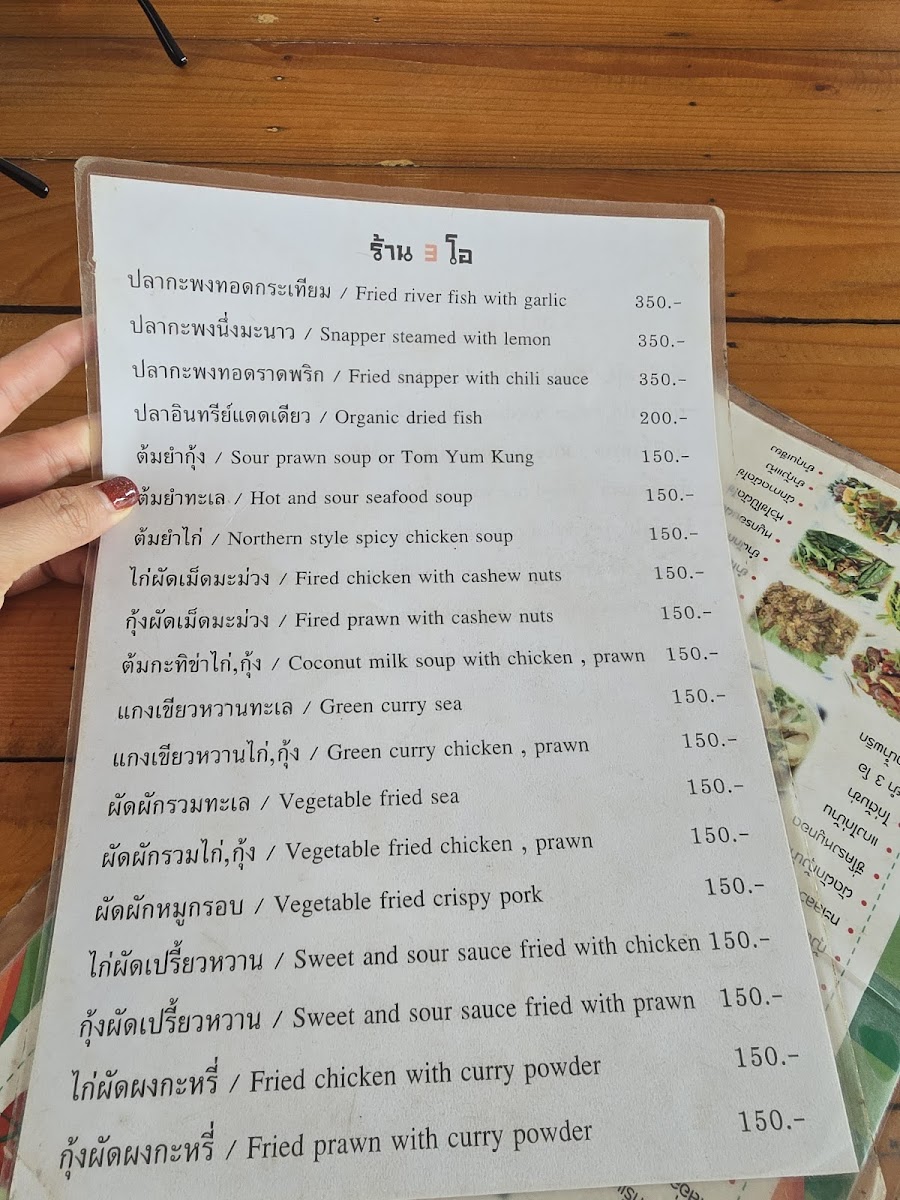 ร้าน 3 โอ
ปลากะพงทอดกระเทียม / Fried river fish with garlic 350.-
ปลากะพงนึ่งมะนาว / Snapper steamed with lemon 350.-
ปลากะพงทอดราดพริก / Fried snapper with chili sauce 350.-
ปลาอินทรีย์แดดเดียว / Organic dried fish 200.-
ต้มยำกุ้ง / Sour prawn soup or Tom Yum Kung 150.-
ต้มยำทะเล / Hot and sour seafood soup 150.-
ต้มยำไก่ / Northern style spicy chicken soup 150.-
ไก่ผัดเม็ดมะม่วง / Fired chicken with cashew nuts 150.-
กุ้งผัดเม็ดมะม่วง / Fired prawn with cashew nuts 150.-
ต้มกะทิข่าไก่,กุ้ง / Coconut milk soup with chicken , prawn 150.-
แกงเขียวหวานทะเล / Green curry sea 150.-
แกงเขียวหวานไก่,กุ้ง / Green curry chicken , prawn 150.-
ผัดผักรวมทะเล / Vegetable fried sea 150.-
ผัดผักรวมไก่,กุ้ง / Vegetable fried chicken , prawn 150.-
ผัดผักหมูกรอบ / Vegetable fried crispy pork 150.-
ไก่ผัดเปรี้ยวหวาน / Sweet and sour sauce fried with chicken 150.-
กุ้งผัดเปรี้ยวหวาน / Sweet and sour sauce fried with prawn 150.-
ไก่ผัดผงกะหรี่ / Fried chicken with curry powder 150.-
กุ้งผัดผงกะหรี่ / Fried prawn with curry powder 150.-